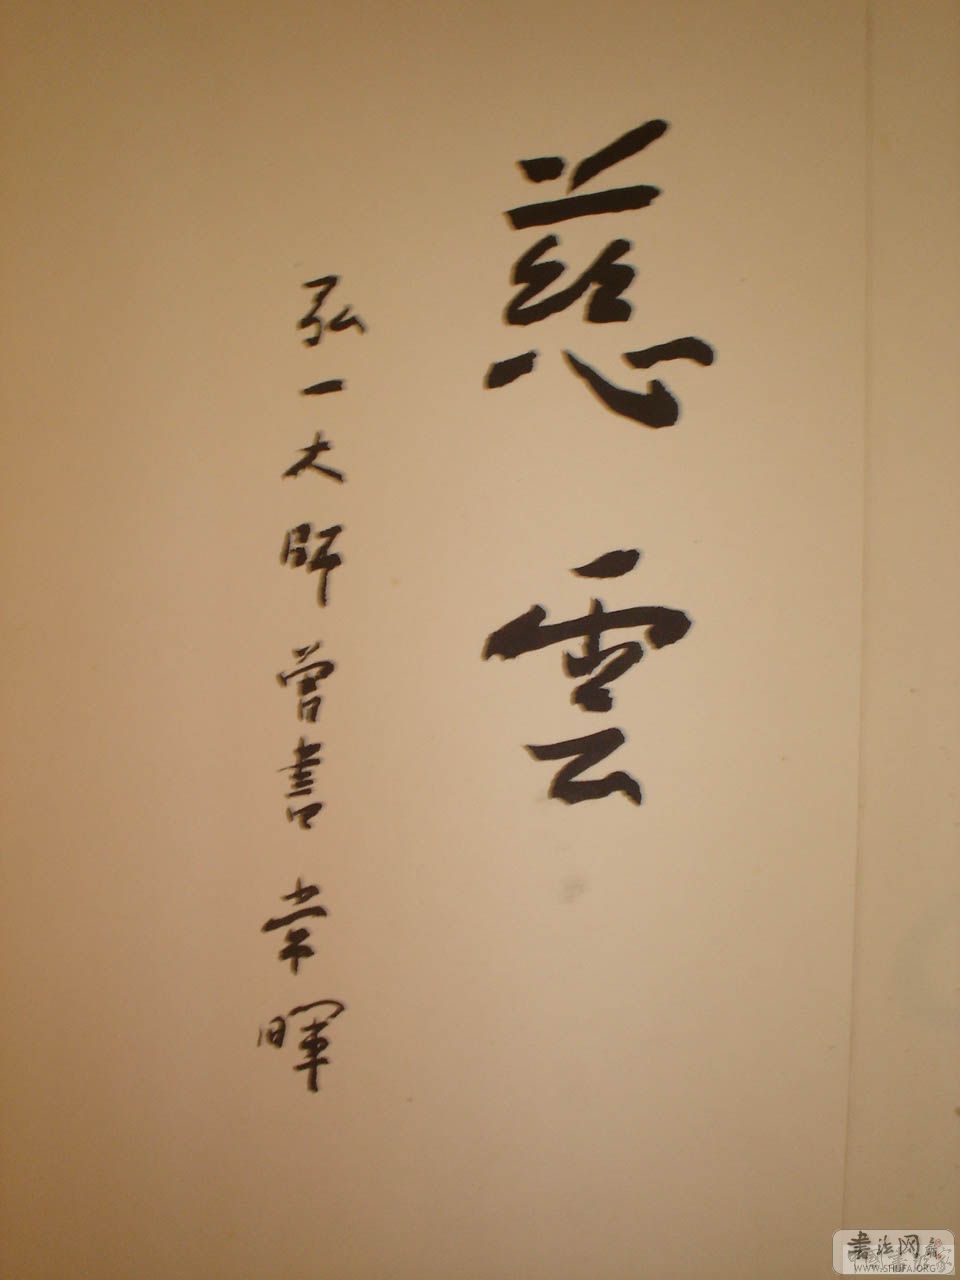 慈雲
弘一大師曾書 常暉
書法网
WWW.SHUFA.ORG